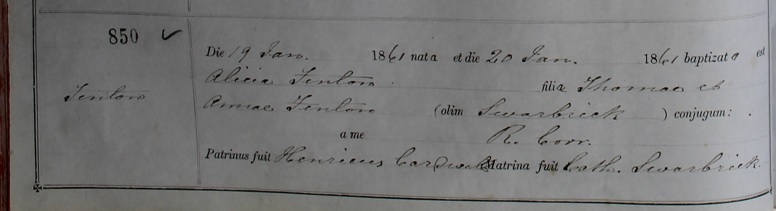 850 ✓
Die 19 Jan. 1861 nata et die 20 Jan. 1861 baptizata est
Alicia Fenton filia Thomae et
Fenton
Annae Fenton (olim Swarbrick) conjugum:
a me R. Corr.
Patrinus fuit Henricus Cardwell Matrina fuit Cath. Swarbrick.